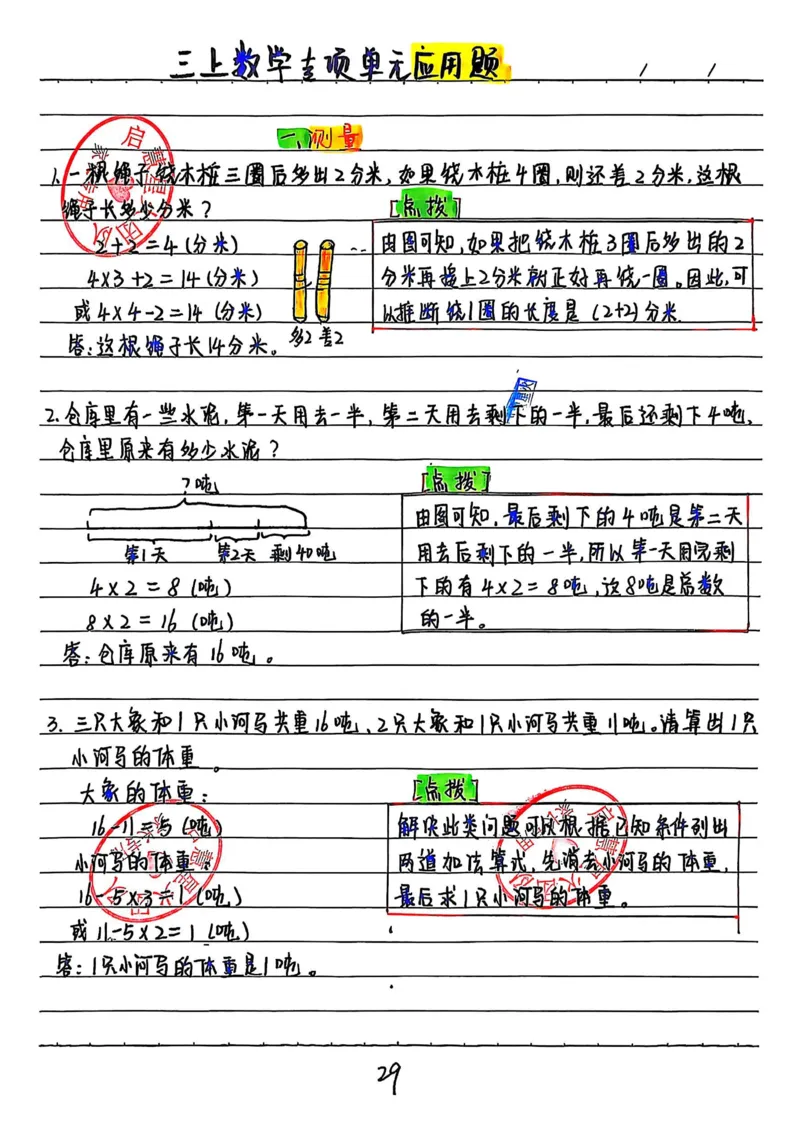 三上数学专项单元应用题
一、测量
1.一根绳子绕木桩三圈后多出2分米,如果绕木桩4圈,则还差2分米,这根
绳子长多少分米?
2+2=4(分米)
4×3+2=14(分米)
或4×4-2=14(分米)
答:这根绳子长14分米。
多2 差2
[点拨]
由图可知,如果把绕木桩3圈后多出的2
分米再接上2分米就正好再绕一圈。因此,可
以推断绕1圈的长度是(2+2)分米.
2.仓库里有一些水泥,第一天用去一半,第二天用去剩下的一半,最后还剩下4吨,
仓库里原来有多少水泥?
?吨
第1天 第2天 剩40吨
4×2=8(吨)
8×2=16(吨)
答:仓库原来有16吨。
[点拨]
由图可知,最后剩下的4吨是第二天
用去后剩下的一半,所以第一天用完剩
下的有4×2=8吨,这8吨是总数
的一半。
3.三只大象和1只小河马共重16吨、2只大象和1只小河马共重11吨。请算出1只
小河马的体重。
大象的体重:
16-11=5(吨)
小河马的体重:
16-5×3=1(吨)
或11-5×2=1(吨)
答:1只小河马的体重是1吨。
[点拨]
解决此类问题可以根据已知条件列出
两道加法算式,先消去小河马的体重,
最后求1只小河马的体重。
29